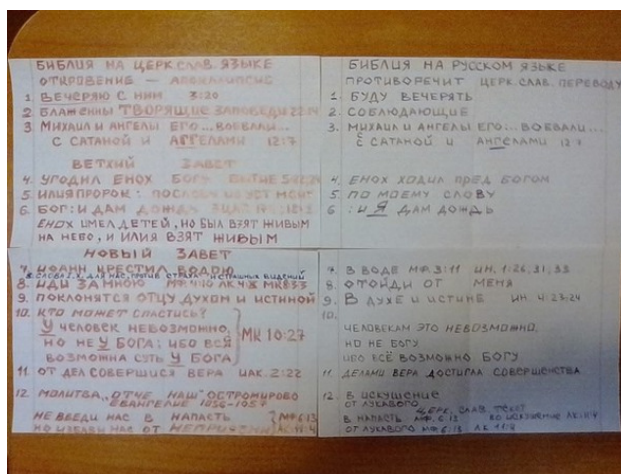 БИБЛИЯ НА ЦЕРК. СЛАВ. ЯЗЫКЕ
ОТКРОВЕНИЕ — АПОКАЛИПСИС
1. ВЕЧЕРЯЮ С НИМ 3:20
2. БЛАЖЕННЫ ТВОРЯЩИЕ ЗАПОВЕДИ 22:14
3 МИХАИЛ И АНГЕЛЫ ЕГО... ВОЕВАЛИ...
С САТАНОЙ И АГГЕЛАМИ 12:7
ВЕТХИЙ ЗАВЕТ
4. УГОДИЛ ЕНОХ БОГУ БЫТИЕ
5. ИЛИЯ ПРОРОК:
6. БОГ: И ДАМ ДОЖДЬ
ЕНОХ ИМЕЛ ДЕТЕЙ, НО БЫЛ ВЗЯТ ЖИВЫМ
НА НЕБО, И ИЛИЯ ВЗЯТ ЖИВЫМ
НОВЫЙ ЗАВЕТ
7. ИОАНН КРЕСТИЛ ВОДОЮ
СЛОВА ДЛЯ НАС, ПРОТИВ СТРАХА
8. ИДИ ЗА МНОЮ МФ 4:10 ЛК 4:8 МК 8:33
9. ПОКЛОНЯТСЯ ОТЦУ ДУХОМ И ИСТИНОЙ
10. КТО МОЖЕТ СПАСТИСЬ?
У ЧЕЛОВЕК НЕВОЗМОЖНО,
НО НЕ У БОГА; ИБО ВСЯ
ВОЗМОЖНА СУТЬ У БОГА
МК 10:27
11. ОТ ДЕЛ СОВЕРШИСЯ ВЕРА ИАК. 2:22
12. МОЛИТВА „ОТЧЕ НАШ" ОСТРОМИРОВО
ЕВАНГЕЛИЕ 1056-1057
НЕ ВВЕДИ НАС В НАПАСТЬ МФ 6:13
НО ИЗБАВИ НАС ОТ НЕПРИЯЗНИ ЛК 11:4
БИБЛИЯ НА РУССКОМ ЯЗЫКЕ
ПРОТИВОРЕЧИТ ЦЕРК. СЛАВ. ПЕРЕВОДУ
1. БУДУ ВЕЧЕРЯТЬ
2. СОБЛЮДАЮЩИЕ
3. МИХАИЛ И АНГЕЛЫ ЕГО... ВОЕВАЛИ...
С САТАНОЙ И АНГЕЛАМИ 12:7
4. ЕНОХ ХОДИЛ ПРЕД БОГОМ
5. ПО МОЕМУ СЛОВУ
6 : И Я ДАМ ДОЖДЬ
7. В ВОДЕ МФ. 3:11 ИН. 1:26,31,33
8. ОТОЙДИ ОТ МЕНЯ
9. В ДУХЕ И ИСТИНЕ ИН. 4:23,24
10.
ЧЕЛОВЕКАМ ЭТО НЕВОЗМОЖНО,
НО НЕ БОГУ
ИБО ВСЁ ВОЗМОЖНО БОГУ
11. ДЕЛАМИ ВЕРА ДОСТИГЛА СОВЕРШЕНСТВА
12. В ИСКУШЕНИЕ
ОТ ЛУКАВОГО
ЦЕРК. СЛАВ. ТЕКСТ
В НАПАСТЬ МФ. 6:13 ВО ИСКУШЕНИЕ ЛК. 11:4
ОТ ЛУКАВОГО МФ. 6:13 ЛК 11:4